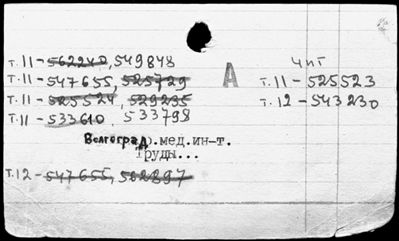 чит
т.11-562240, 549848
т.11-547655, 525729 А т.11-525523
т.11-525524, 529235 т.12-543230
т.11-533610, 533798
Волгоград.мед.ин-т.
Труды...
т.12-547655, 562897